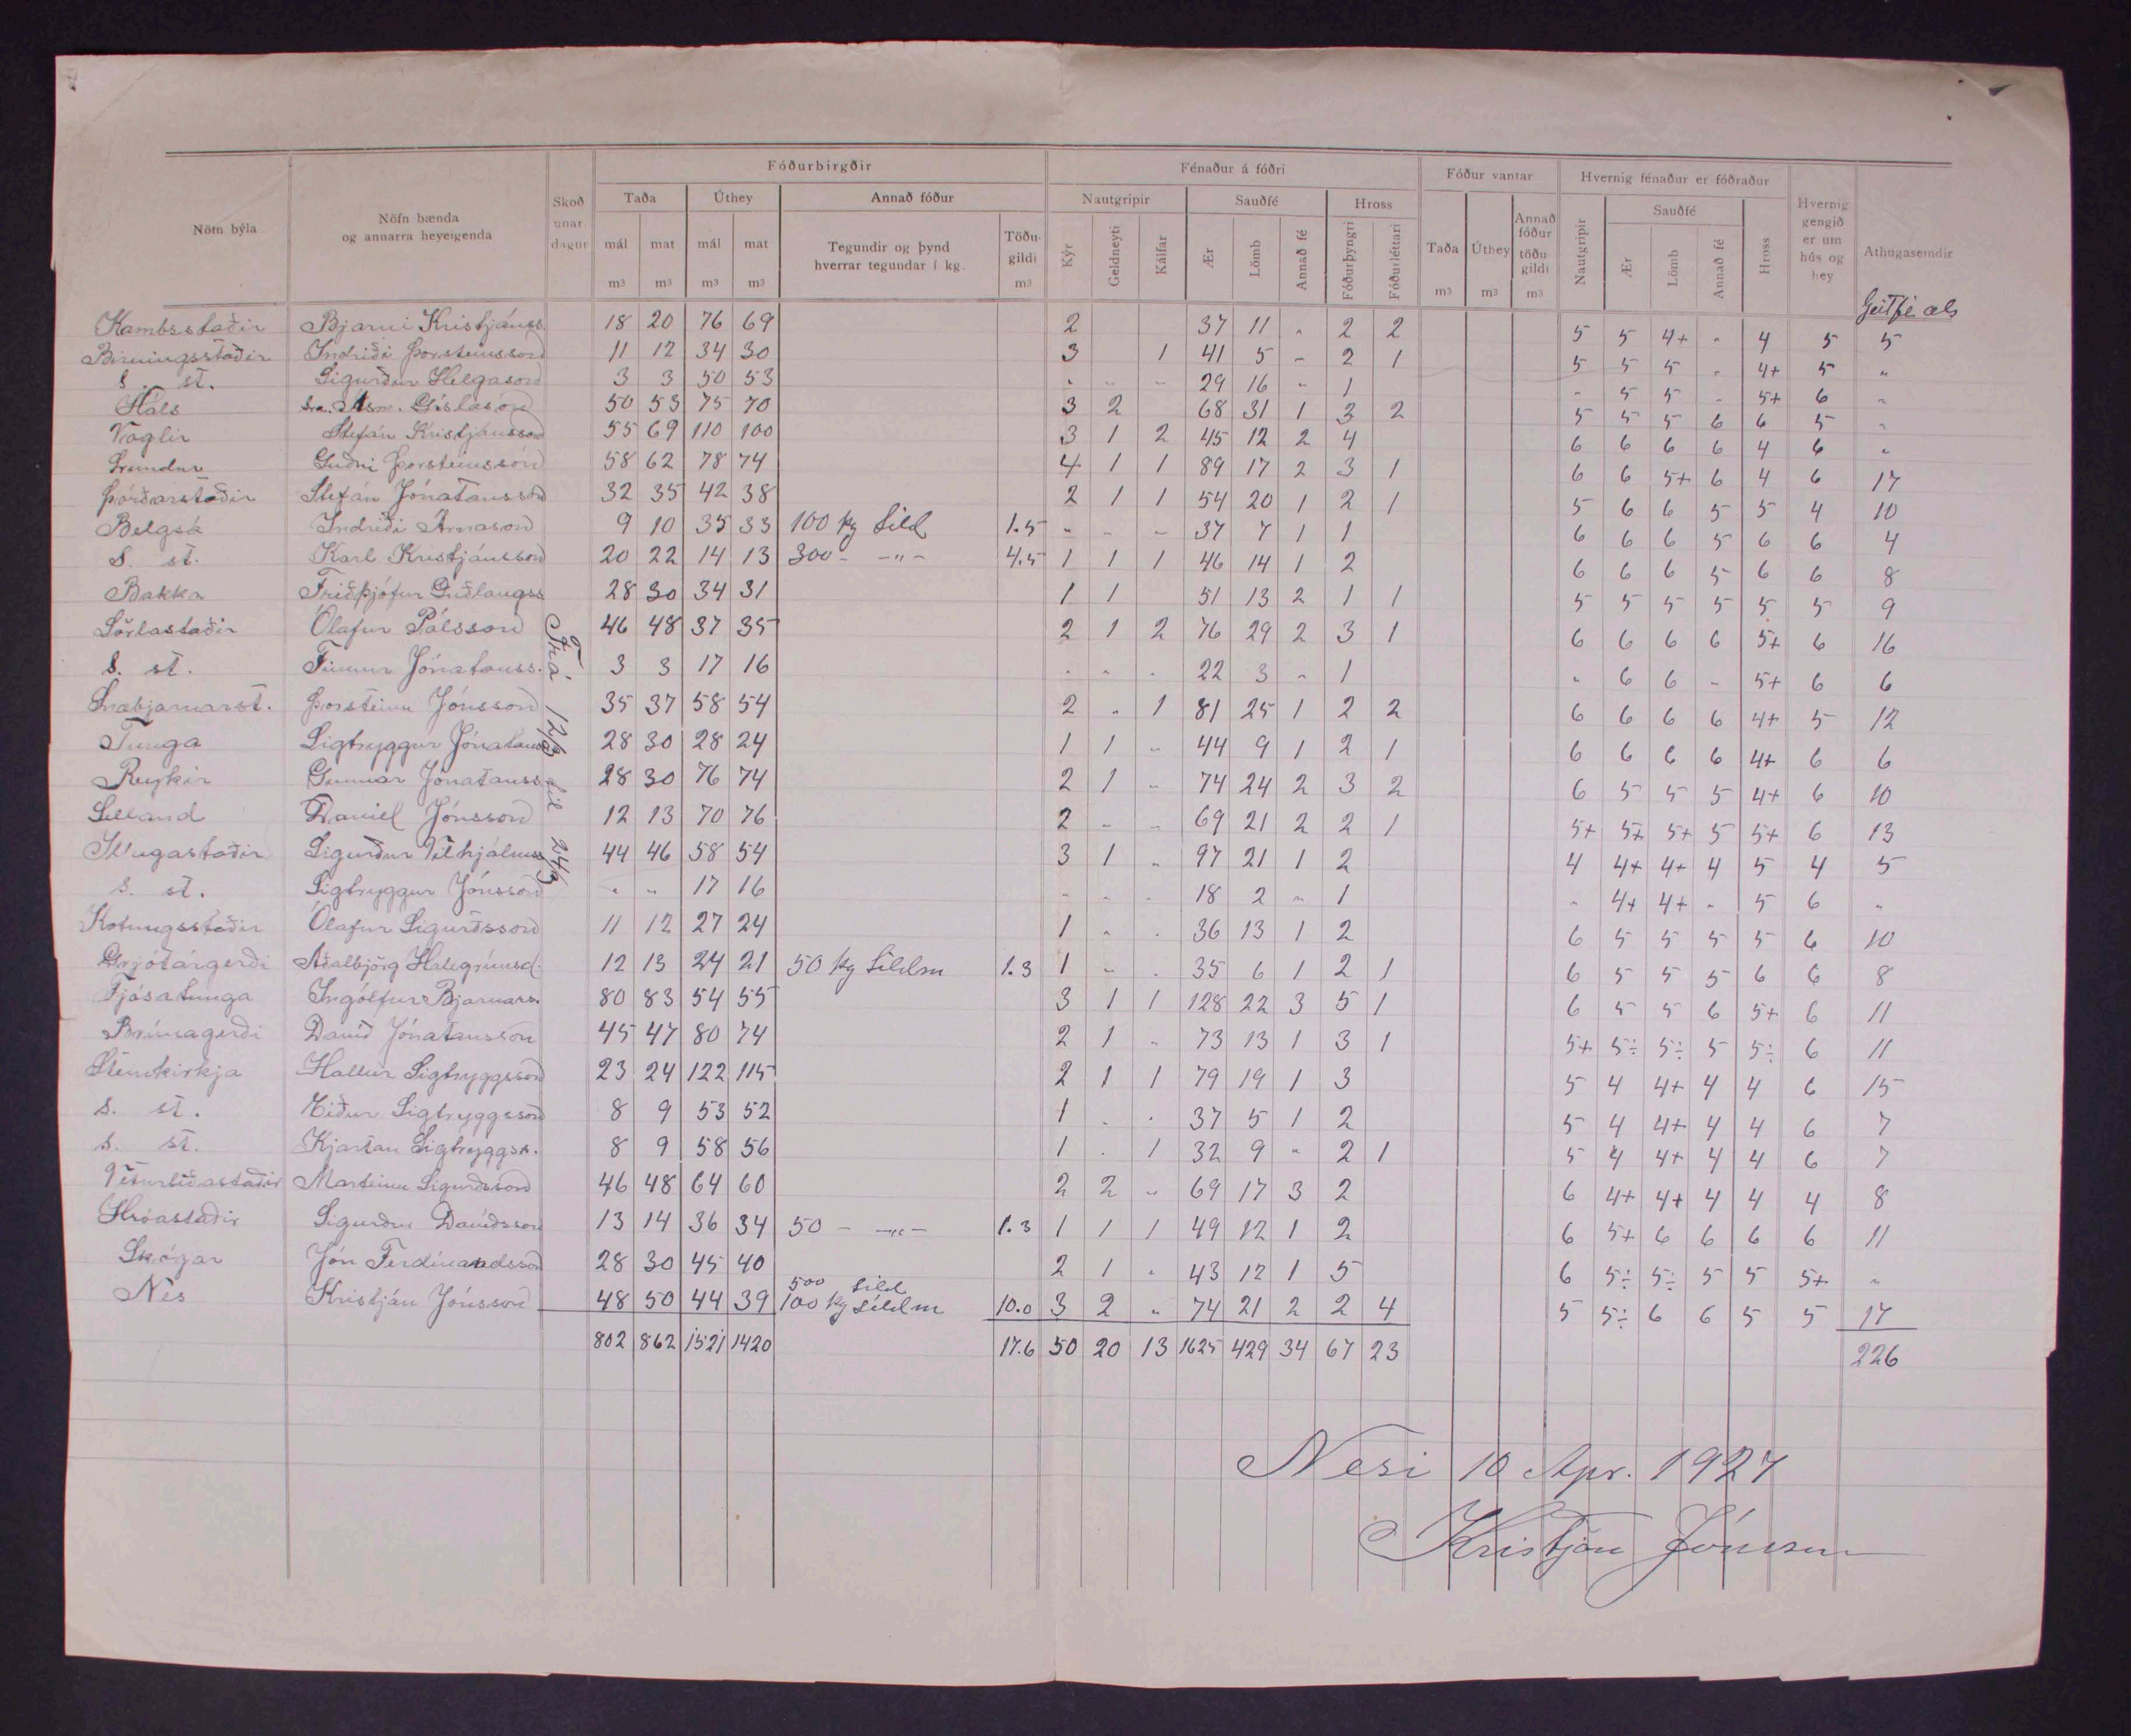 Fóðurbirgðir Fénaður á fóðri Fóður vantar Hvernig fénaður er fóðraður
Nöfn býla Nöfn bænda og annarra heyeigenda Skoðunardagur Taða Úthey Annað fóður Nautgripir Sauðfé Hross Taða Úthey Annað fóður töðugildi Nautgripir Sauðfé Hross Hvernig gengið er um hús og hey Athugasemdir
mál mat mál mat Tegundir og þynd hverrar tegundar í kg. Töðugildi Kýr Geldneyti Kálfar Ær Lömb Annað fé Fóðurþyngri Fóðurléttari Ær Lömb Annað fé
m³ m³ m³ m³ m³ m³ m³ m³
Geitfé als
Frá 12/3 til 24/3
Kambsstaðir Bjarni Kristjánss. 18 20 76 69 2 37 11 " 2 2 5 5 4+ " 4 5 5
Birningsstaðir Indriði Þorsteinsson 11 12 34 30 3 1 41 5 - 2 1 5 5 5 " 4+ 5 "
s. st. Sigurður Helgason 3 3 50 53 " " " 29 16 " 1 " 5 5 " 5+ 6 "
Háls Sra. Ásm. Gíslason 50 53 75 70 3 2 68 31 1 3 2 5 5 5 6 6 5 "
Vaglir Stefán Kristjánsson 55 69 110 100 3 1 2 45 12 2 4 6 6 6 6 4 6 "
Lundur Guðni Þorsteinsson 58 62 78 74 4 1 1 89 17 2 3 1 6 6 5+ 6 4 6 17
Þórðarstaðir Stefán Jónatansson 32 35 42 38 2 1 1 54 20 1 2 1 5 6 6 5 5 4 10
Belgsá Indriði Árnason 9 10 35 33 100 kg Síld 1.5 - - - 37 7 1 1 6 6 6 5 6 6 4
s. st. Karl Kristjánsson 20 22 14 13 300 - -"- 4.5 1 1 1 46 14 1 2 6 6 6 5 6 6 8
Bakka Friðþjófur Guðlaugss 28 30 34 31 1 1 51 13 2 1 1 5 5 5 5 5 5 9
Sörlastaðir Ólafur Pálsson 46 48 37 35 2 1 2 76 29 2 3 1 6 6 6 6 5+ 6 16
s. st. Finnur Jónatanss. 3 3 17 16 " " " 22 3 " 1 " 6 6 - 5+ 6 6
Snæbjarnarst. Þorsteinn Jónsson 35 37 58 54 2 " 1 81 25 1 2 2 6 6 6 6 4+ 5 12
Tunga Sigtryggur Jónatanss 28 30 28 24 1 1 " 44 9 1 2 1 6 6 6 6 4+ 6 6
Reykir Gunnar Jónatanss 28 30 76 74 2 1 " 74 24 2 3 2 6 5 5 5 4+ 6 10
Selland Daniel Jónsson 12 13 70 76 2 " " 69 21 2 2 1 5+ 5+ 5+ 5 5+ 6 13
Illugastaðir Sigurður Vilhjálmss 44 46 58 54 3 1 " 97 21 1 2 4 4+ 4+ 4 5 4 5
s. st. Sigtryggur Jónsson " " 17 16 " " " 18 2 " 1 " 4+ 4+ " 5 6 "
Kotungsstaðir Ólafur Sigurðsson 11 12 27 24 1 " " 36 13 1 2 6 5 5 5 5 6 10
Grjótárgerði Aðalbjörg Hallgrímsd. 12 13 24 21 50 kg Síldm 1.3 1 " " 35 6 1 2 1 6 5 5 5 6 6 8
Fjósatunga Ingólfur Bjarnars. 80 83 54 55 3 1 1 128 22 3 5 1 6 5 5 6 5+ 6 11
Brúnagerði Davíð Jónatansson 45 47 80 74 2 1 " 73 13 1 3 1 5+ 5÷ 5÷ 5 5÷ 6 11
Steinkirkja Hallur Sigtryggsson 23 24 122 115 2 1 1 79 19 1 3 5 4 4+ 4 4 6 15
s. st. Eiður Sigtryggsson 8 9 53 52 1 " " 37 5 1 2 5 4 4+ 4 4 6 7
s. st. Kjartan Sigtryggss. 8 9 58 56 1 " 1 32 9 " 2 1 5 4 4+ 4 4 6 7
Veturliðastaðir Marteinn Sigurðsson 46 48 64 60 2 2 " 69 17 3 2 6 4+ 4+ 4 4 4 8
Hróastaðir Sigurður Davíðsson 13 14 36 34 50 - -"- 1.3 1 1 1 49 12 1 2 6 5+ 6 6 6 6 11
Skógar Jón Ferdínandsson 28 30 45 40 2 1 " 43 12 1 5 6 5÷ 5÷ 5 5 5+ "
Nes Kristján Jónsson 48 50 44 39 500 Síld 100 kg Síldm 10.0 3 2 " 74 21 2 2 4 5 5÷ 6 6 5 5 17
802 862 1521 1420 17.6 50 20 13 1625 429 34 67 23 226
Nesi 10 Apr. 1927
Kristján Jónsson